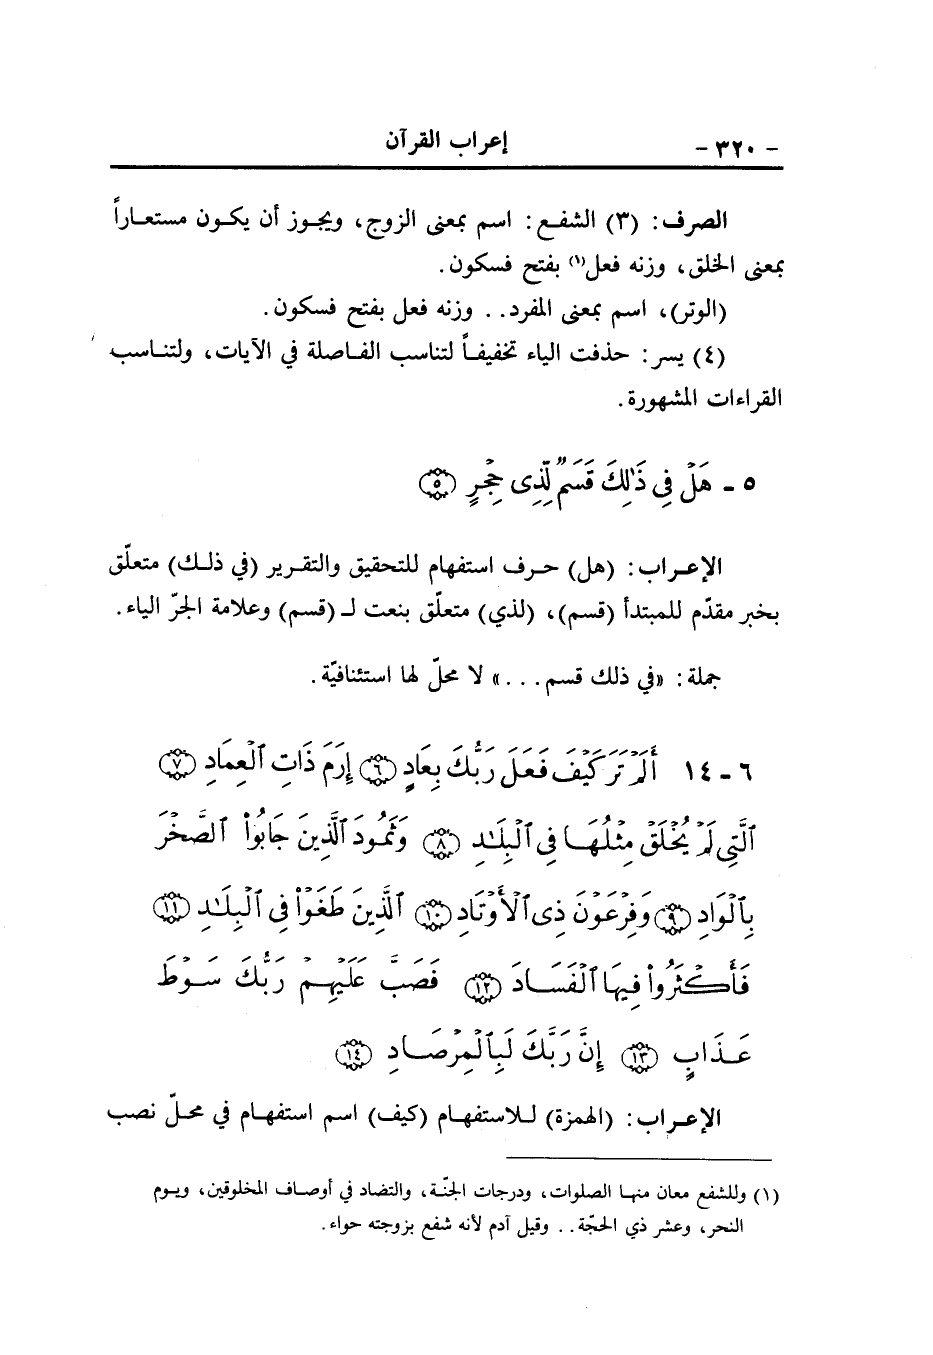 - ٣٢٠ -
إعراب القرآن
الصرف: (٣) الشفع: اسم بمعنى الزوج، ويجوز أن يكون مستعاراً
بمعنى الخلق، وزنه فعل(١) بفتح فسكون.
(الوتر)، اسم بمعنى المفرد.. وزنه فعل بفتح فسكون.
(٤) يسر: حذفت الياء تخفيفاً لتناسب الفاصلة في الآيات، ولتناسب
القراءات المشهورة.
٥ - هَلْ فِى ذَٰلِكَ قَسَمٌ لِّذِى حِجْرٍ ﴿٥﴾
الإعراب: (هل) حرف استفهام للتحقيق والتقرير (في ذلك) متعلّق
بخبر مقدّم للمبتدأ (قسم)، (لذي) متعلّق بنعت لـ (قسم) وعلامة الجرّ الياء.
جملة: «في ذلك قسم...» لا محلّ لها استئنافيّة.
٦ - ١٤ أَلَمْ تَرَ كَيْفَ فَعَلَ رَبُّكَ بِعَادٍ ﴿٦﴾ إِرَمَ ذَاتِ ٱلْعِمَادِ ﴿٧﴾
ٱلَّتِى لَمْ يُخْلَقْ مِثْلُهَا فِى ٱلْبِلَٰدِ ﴿٨﴾ وَثَمُودَ ٱلَّذِينَ جَابُوا۟ ٱلصَّخْرَ
بِٱلْوَادِ ﴿٩﴾ وَفِرْعَوْنَ ذِى ٱلْأَوْتَادِ ﴿١٠﴾ ٱلَّذِينَ طَغَوْا۟ فِى ٱلْبِلَٰدِ ﴿١١﴾
فَأَكْثَرُوا۟ فِيهَا ٱلْفَسَادَ ﴿١٢﴾ فَصَبَّ عَلَيْهِمْ رَبُّكَ سَوْطَ
عَذَابٍ ﴿١٣﴾ إِنَّ رَبَّكَ لَبِٱلْمِرْصَادِ ﴿١٤﴾
الإعراب: (الهمزة) للاستفهام (كيف) اسم استفهام في محلّ نصب
(١) وللشفع معان منها الصلوات، ودرجات الجنّة، والتضاد في أوصاف المخلوقين، ويوم
النحر، وعشر ذي الحجّة.. وقيل آدم لأنه شفع بزوجته حواء.